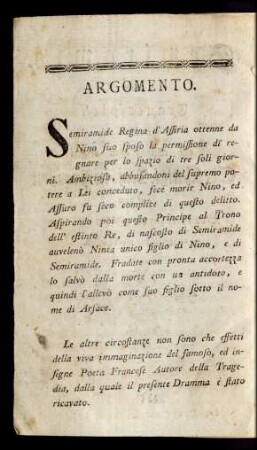 ARGOMENTO.
Semiramide Regina d'Assiria ottenne da
Nino suo sposo la permissione di re-
gnare per lo spazio di tre soli gior-
ni. Ambiziosa, abbusandosi del supremo po-
tere a Lei conceduto, fece morir Nino, ed
Assuro fu seco complice di questo delitto.
Aspirando poi questo Principe al Trono
dell' estinto Re, di nascosto di Semiramide
avvelenò Ninea unico figlio di Nino, e di
Semiramide. Fradate con pronta accortezza
lo salvò dalla morte con un antidoto, e
quindi l'allevò come suo figlio sotto il no-
me di Arsace.
Le altre circostanze non sono che effetti
della viva immaginazione del famoso, ed in-
signe Poeta Francese Autore della Trage-
dia, dalla quale il presente Dramma è stato
ricavato.